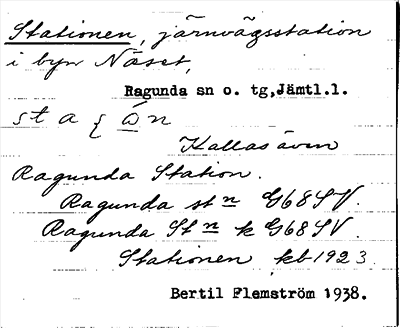 Stationen, järnvägsstation
i byn Näset,
Ragunda sn o. tg, Jämtl.l.
sta{ón
Kallas även
Ragunda Station.
Ragunda stn G68SV.
Ragunda Stn k G68SV.
Stationen kb1923.
Bertil Flemström 1938.